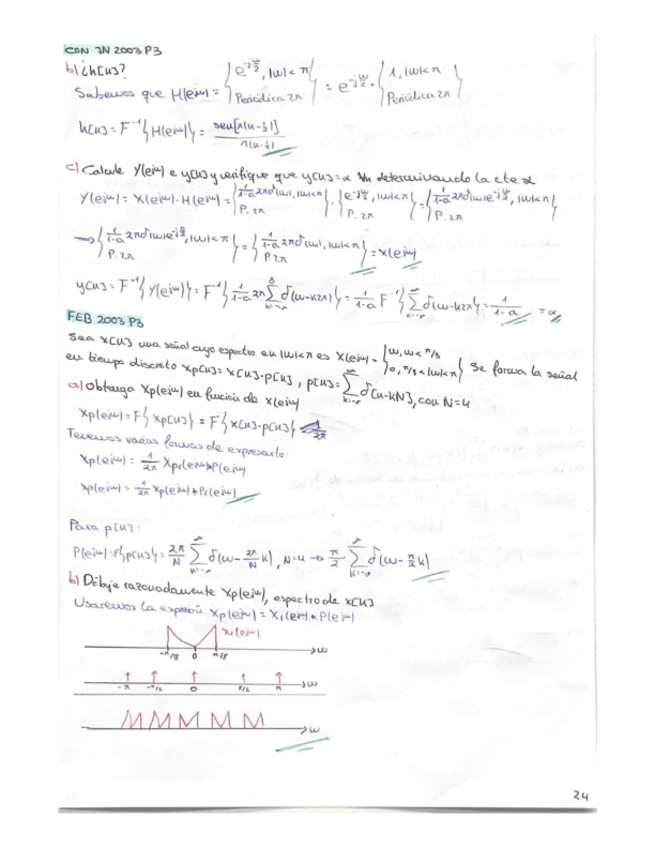 CON JN 2003 P3
b) ¿h[n]?
Sabemos que H(e^jω) = { e^-jω/2, |ω| < π ; Periódica 2π } = e^-jω/2 · { 1, |ω| < π ; Periódica 2π }
h[n] = F^-1{H(e^jω)} = sen[π(n-1/2)] / π(n-1/2)
c) Calcule Y(e^jω) e y[n] y verifique que y[n] = α determinando la cte α
Y(e^jω) = X(e^jω)·H(e^jω) = { 1/1-a 2πδ(ω), |ω|<π ; P. 2π } · { e^-jω/2, |ω|<π ; P. 2π } = { 1/1-a 2πδ(ω)e^-jω/2, |ω|<π ; P. 2π }
→ { 1/1-a 2πδ(ω)e^-j0/2, |ω|<π ; P. 2π } = { 1/1-a 2πδ(ω), |ω|<π ; P. 2π } = X(e^jω)
y[n] = F^-1{Y(e^jω)} = F^-1{ 1/1-a 2π Σ δ(ω-k2π) } = 1/1-a F^-1{ Σ δ(ω-k2π) } = 1/1-a = α
FEB 2003 P3
Sea x[n] una señal cuyo espectro en |ω|<π es X(e^jω) = { ω, ω<π/8 ; 0, π/8<|ω|<π } Se forma la señal
en tiempo discreto xp[n] = x[n]·p[n], p[n] = Σ δ[n-kN], con N=4
a) Obtenga Xp(e^jω) en función de X(e^jω)
Xp(e^jω) = F{xp[n]} = F{x[n]·p[n]}
Tenemos varias formas de expresarlo:
Xp(e^jω) = 1/2π Xp1(e^jω)*P(e^jω)
Xp(e^jω) = 1/2π Xp(e^jω)*P1(e^jω)
Para p[n]:
P(e^jω) = F{p[n]} = 2π/N Σ δ(ω - 2π/N k), N=4 → π/2 Σ δ(ω - π/2 k)
b) Dibuje razonadamente Xp(e^jω), espectro de x[n]
Usaremos la expresión Xp(e^jω) = X1(e^jω)*P(e^jω)
X1(e^jω)
-π/8 0 π/8 ω
-π -π/2 0 π/2 π ω
ω
24